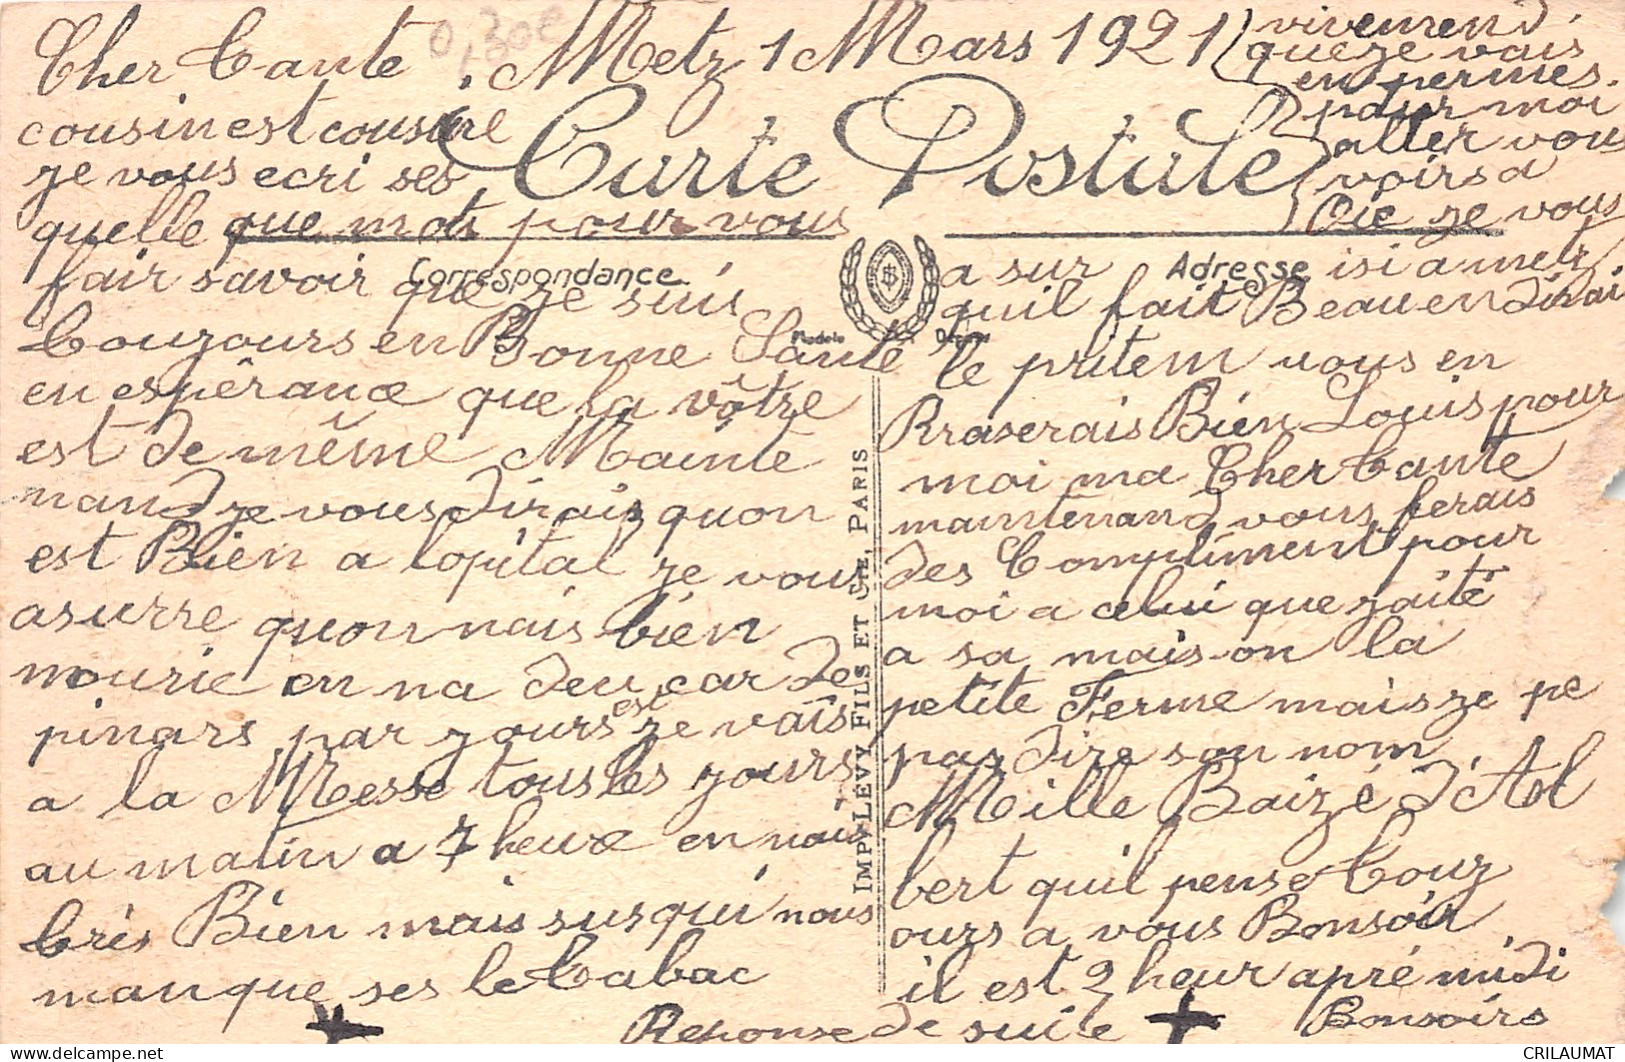 0,30€
Cher Tante, Metz 1 Mars 1921
cousin est cousine
ze vous ecri ses
quelle que mots pour vous
fair savoir que ze suis
Touzours en Bonne Santé
en espêrance que la vôtre
est de même Mainte
nand ze vous dirais quon
est Bien a lopital ze vous
asurre quon nais bien
nourie on na deu car de
pinars par zours est ze vais
a la Messe tous les zours
au matin a 7 heure en nais
très Bien mais susqui nous
manque ses le Tabac
Carte Postale
Correspondance
Adresse
Modèle Déposé
IMP. LEVY FILS ET CIE, PARIS
vivemend
que ze vais
en permes.
pour moi
aller vous
voirs a
Oie ze vous
a sur isi a metz
quil fait Beau en dirai
le pritem vous en
Braserais Bien Louis pour
moi ma Cher Tante
maintenand vous ferais
des Compliment pour
moi a celui que zaité
a sa maison la
petite Ferme mais ze pe
pas dire son nom
Mille Baizé d'Al
bert quil pense touz
ours a vous Bonsoir
il est 2 heur apré midi
Reponse de suite Bonsoirs
CRILAUMAT